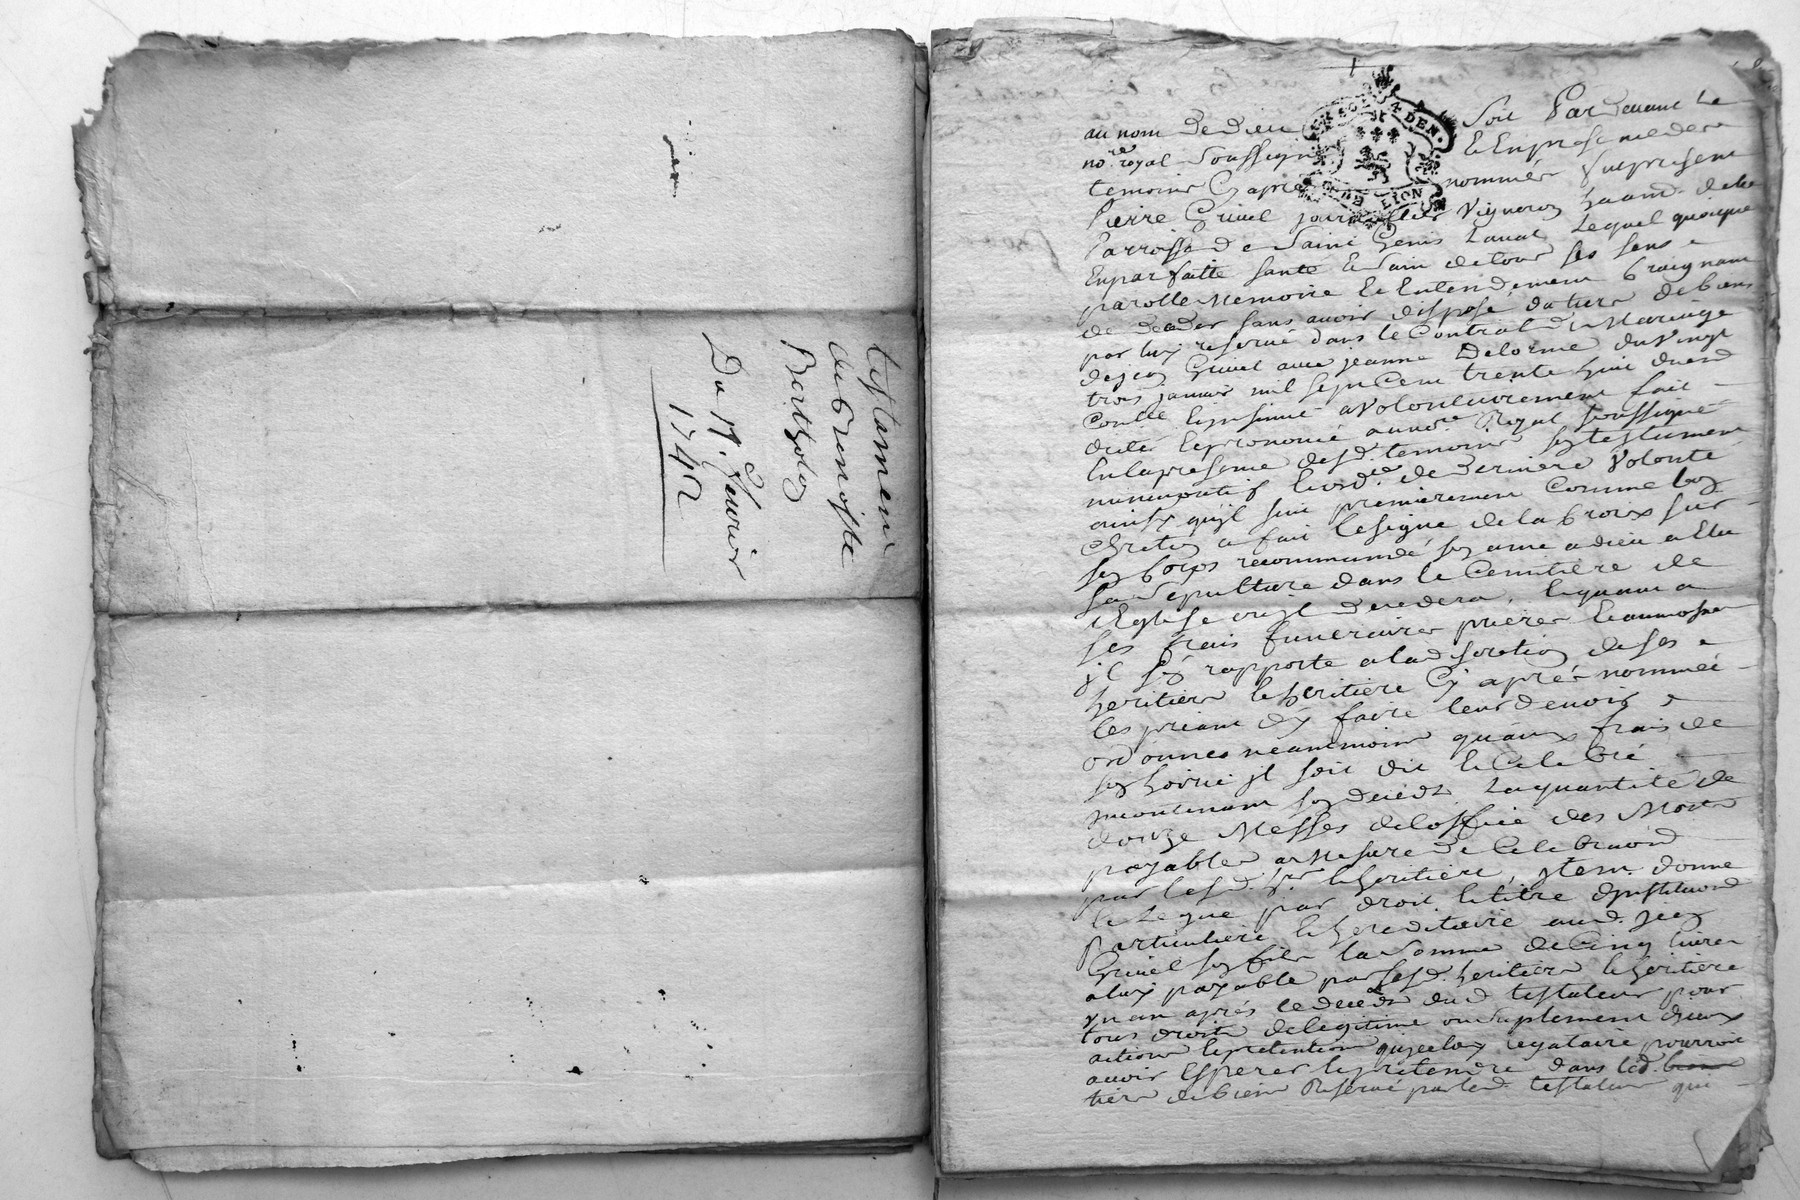 testament
de Benoiste
Bertholoy
Du 17. fevrier
1742
1
au nom de dieu soit Pardevant le
no.re royal soussigné & En presence des
temoins Cy apres nommés fut present
Pierre Grivel journallier Vigneron hant. de la
Parroisse de Saint Genis Laval Lequel quoique
En parfaitte santé & Sain de tous ses sens
parolle memoire & Entendement Craignant
de deceder sans avoir disposé du tiers de biens
par luy reservé dans le Contrat de Mariage
de jean Grivel avec jeanne Delorme du Vingt
trois janvier mil sept Cent trente huit duement
Controllé & insinué a Volontairement fait
dicté & prononcé au no.re Royal soussigné
En la presence desd. temoins son testament
nuncupatif & ord.ce de derniere Volonté
ainsy qu'jl suit premierement Comme bon
Chretien a fait le signe de la Croix sur
son Corps recommandé son ame a dieu a Elu
sa Sepulture dans le Cemetière de
l'Eglise ou jl decedera, & quant a
ses frais funeraires prieres & aumosnes
jl s'en rapporte a la discretion de ses
heritiers & heritiere Cy après nommés
les priant d'y faire leur devoir
ordonnes neantmoins qu'aux frais de
son hoirie jl soit dit & Celebré
jncontinant son decedz La quantité de
douze Messes de l'office des Morts
payables a Mesure de Celebration
par lesd. h.ers & heritiere, jtem. donne
& Legue par droit & titre d'jnstitution
Particuliere & hereditaire aud. jean
Grivel son fils la Somme de Cinq livres
a luy payable par sesd. heritiers & heritiere
un an après le decedz dud. testateur pour
tous droits de legitime ou Suplement d'jceux
actions & pretentions que led. legataire pourroit
avoir Esperer & pretendre dans led.
tiers de biens Reservé par led. testateur qui
SOLS 4 DEN.
G. DE LION